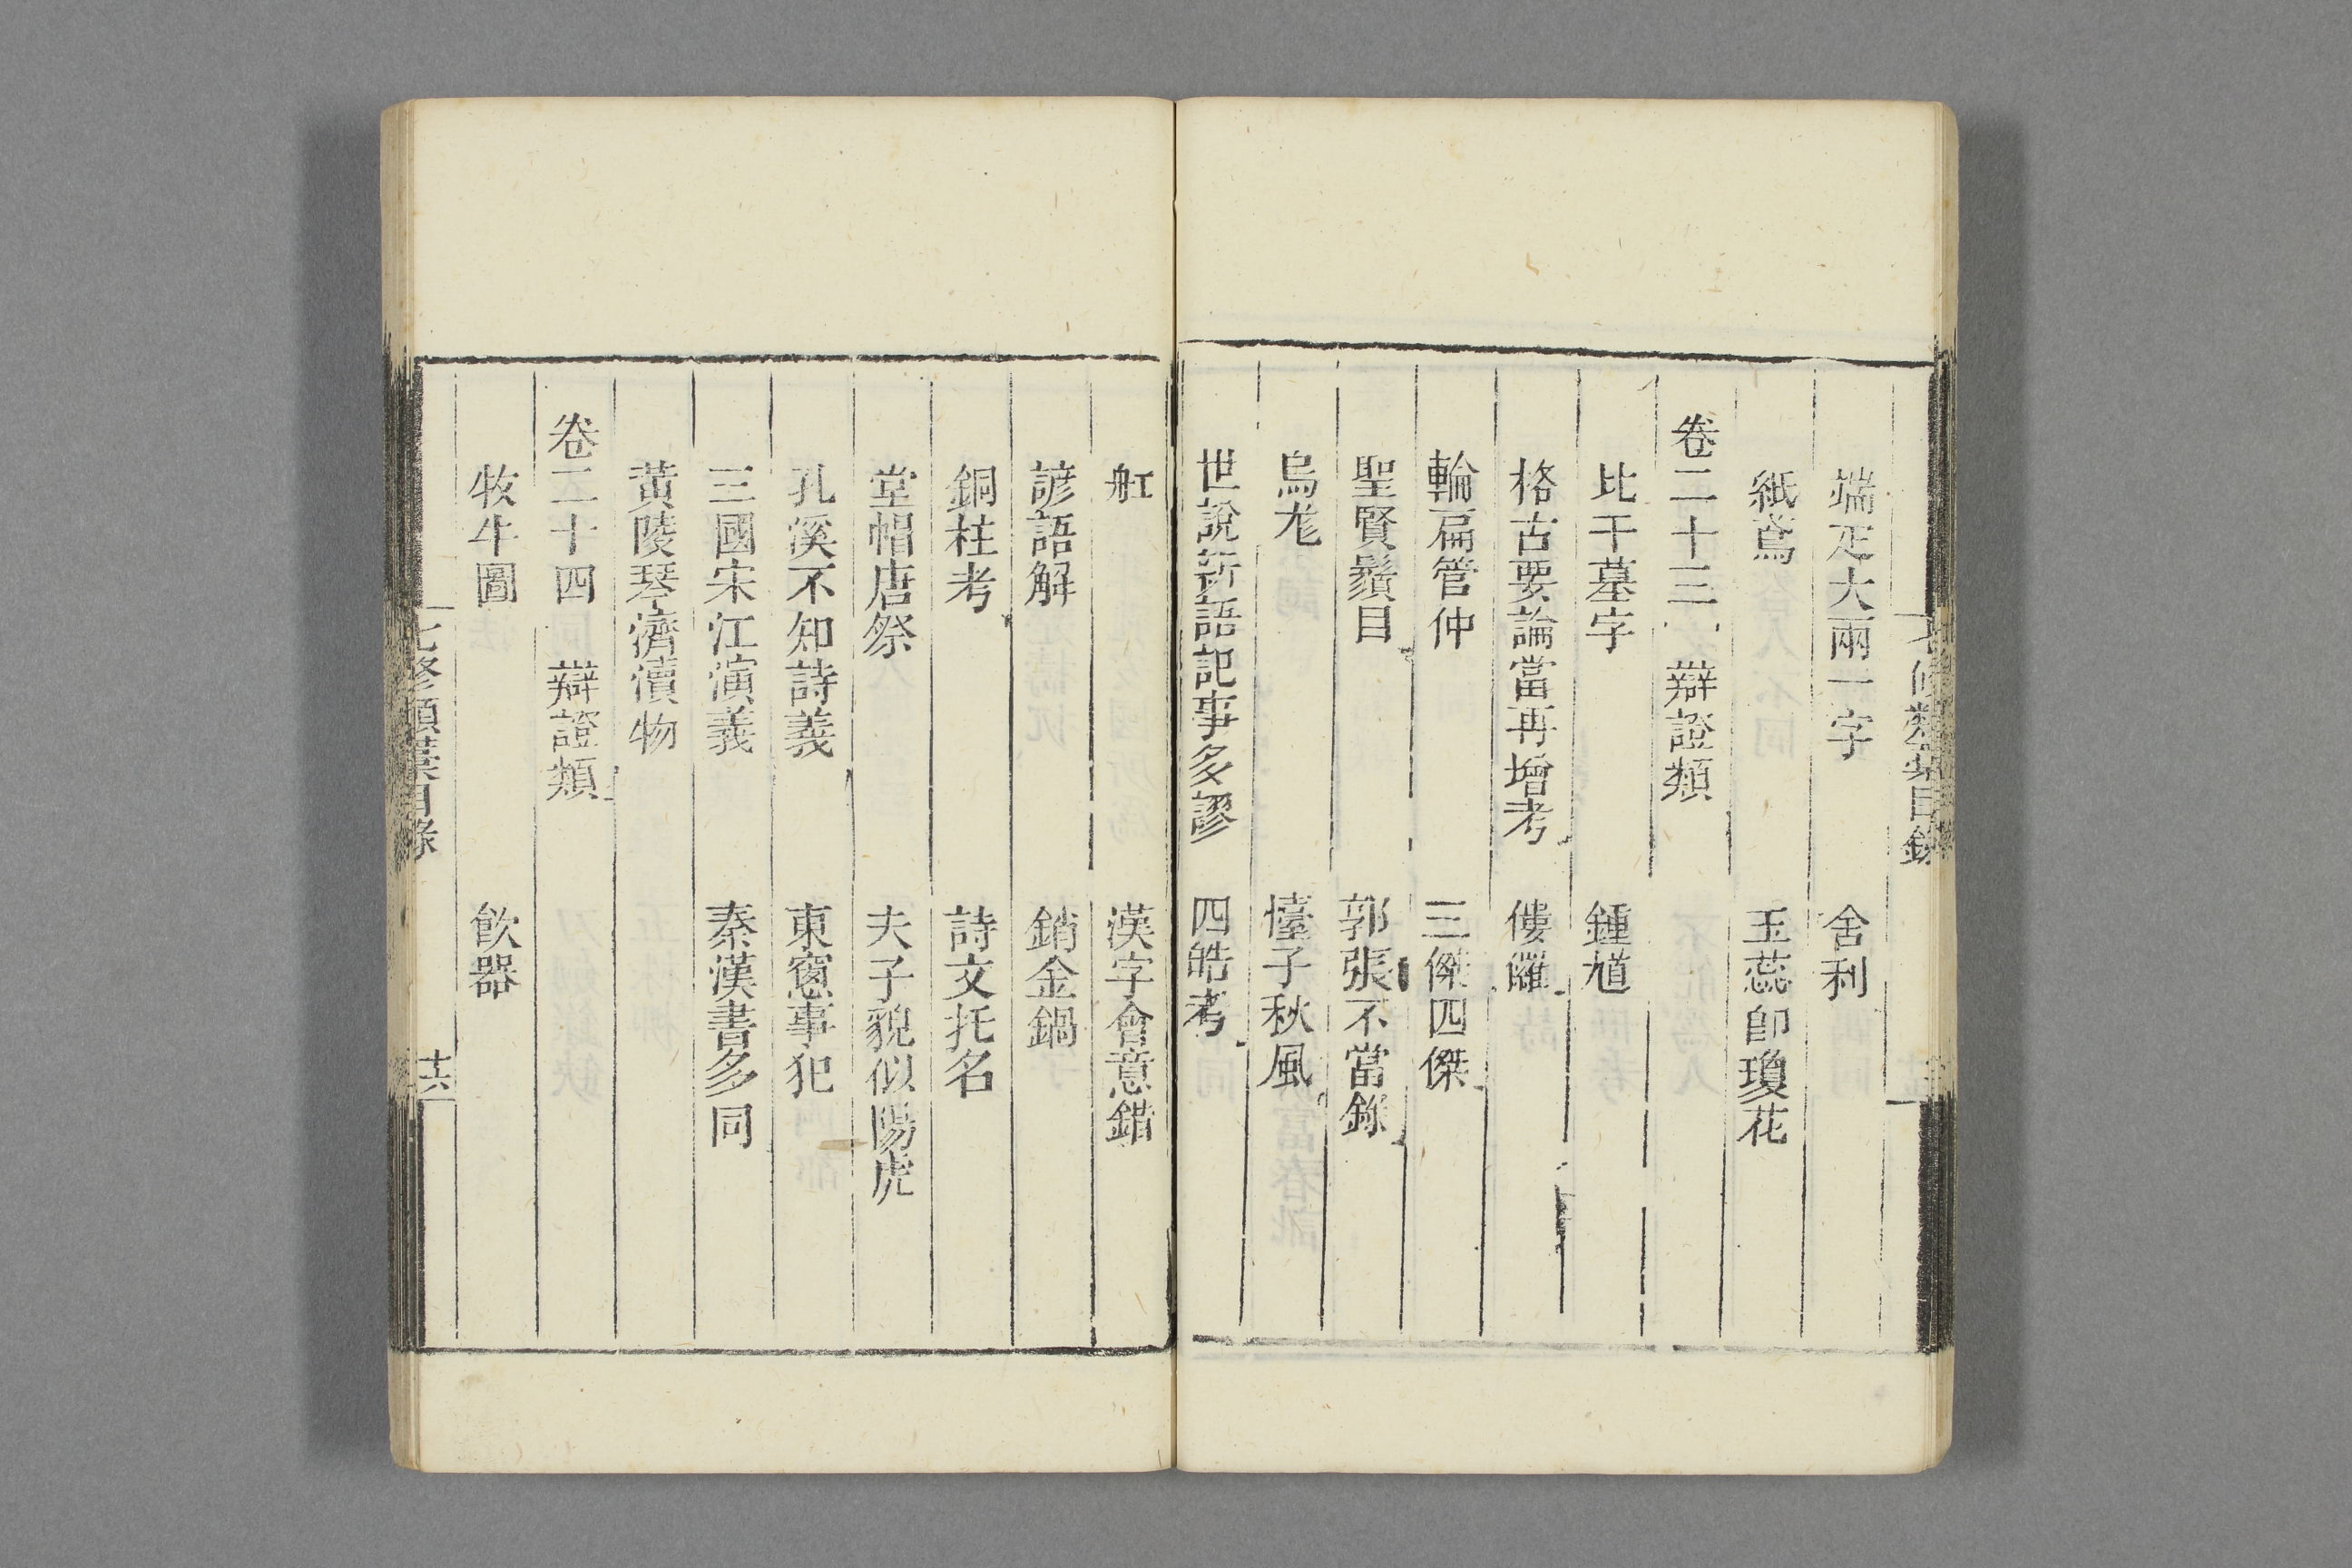 七修類藁目錄
端疋大兩一字　舍利
紙鳶　玉蕊卽瓊花
卷二十三　辯證類
比干墓字　鍾馗
格古要論當再增考　僂儸
輪扁管仲　三傑四傑
聖賢鬚目　郭張不當錄
烏尨　懛子秋風
世說新語記事多謬　四皓考
舡　漢字會意錯
諺語解　銷金鍋
銅柱考　詩文托名
堂帽唐祭　夫子貌似陽虎
孔溪不知詩義　東窻事犯
三國宋江演義　秦漢書多同
黃陵琴濟瀆物
卷二十四　辯證類
牧牛圖　飲器
七修類藁目錄　十六